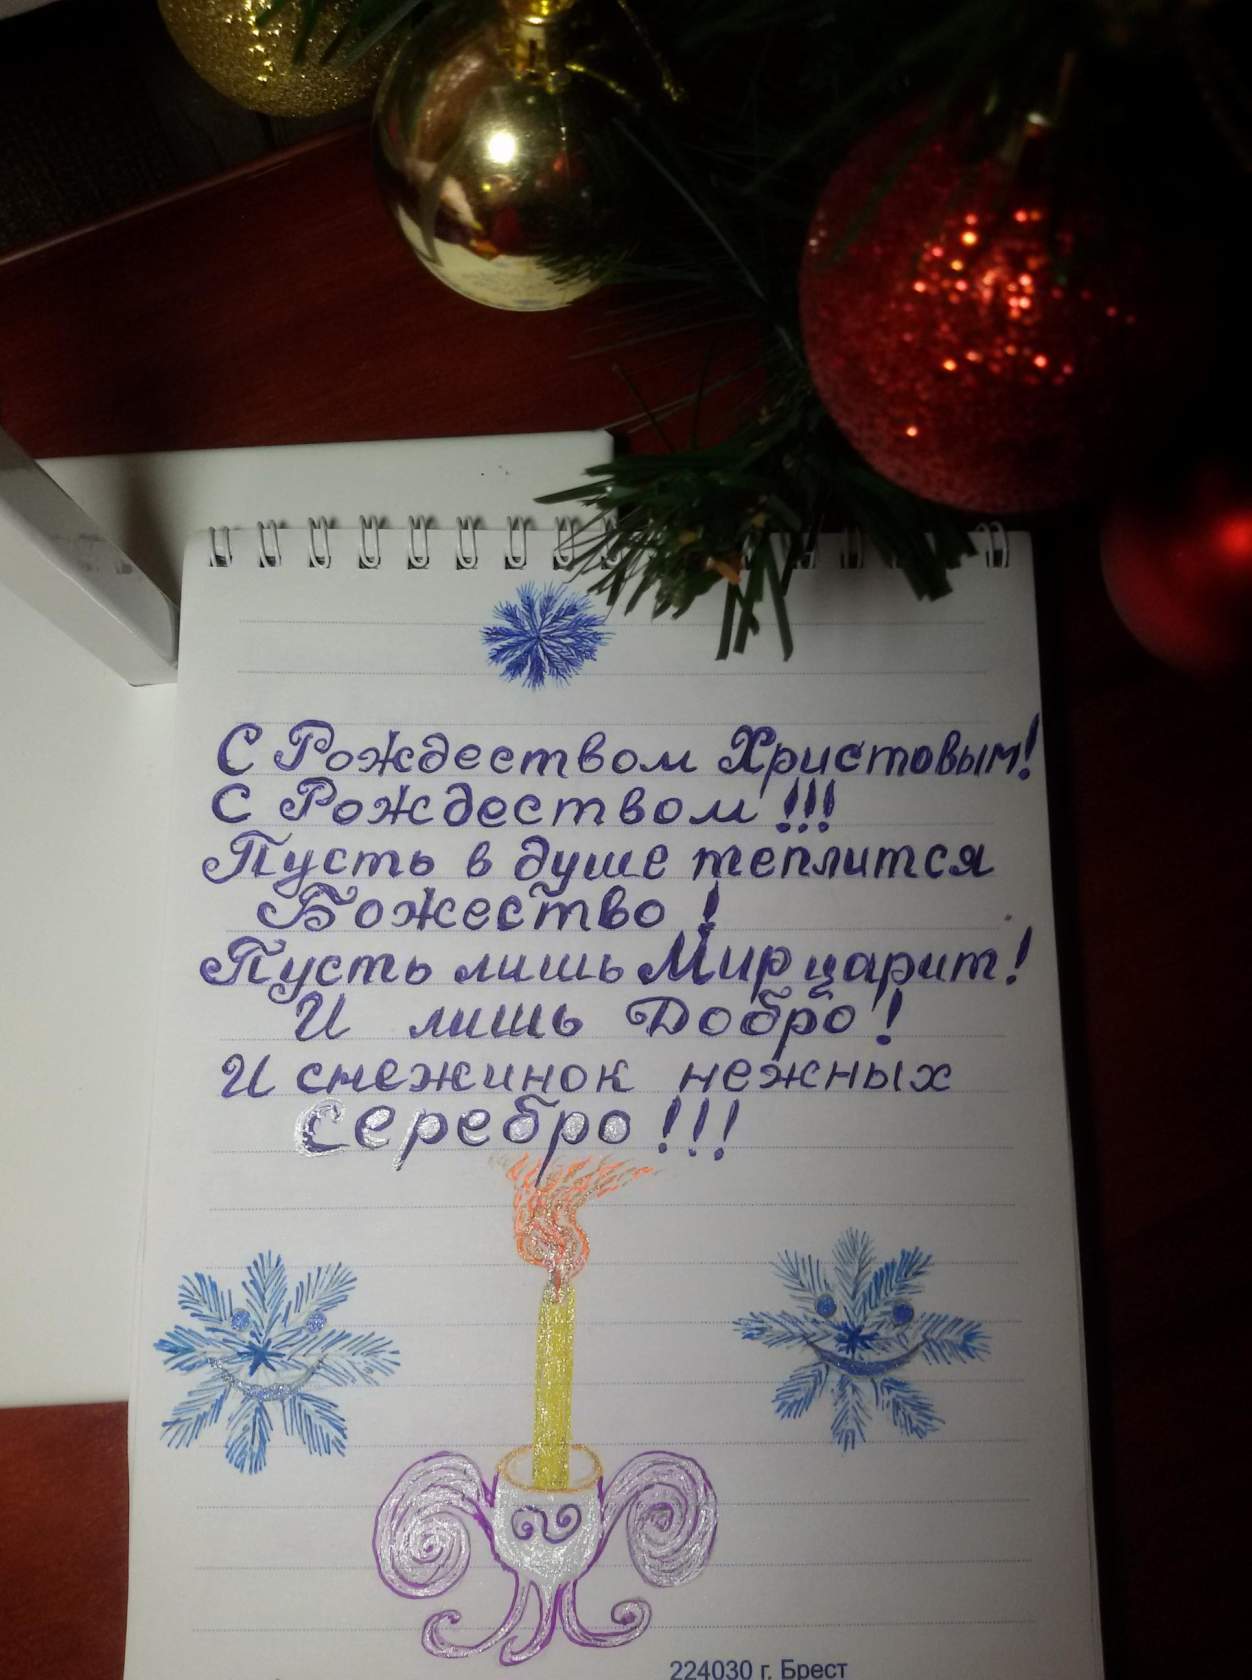 С Рождеством Христовым!
С Рождеством!!!
Пусть в душе теплится
Божество!
Пусть лишь Мир царит!
И лишь Добро!
И снежинок нежных
серебро!!!
224030 г. Брест